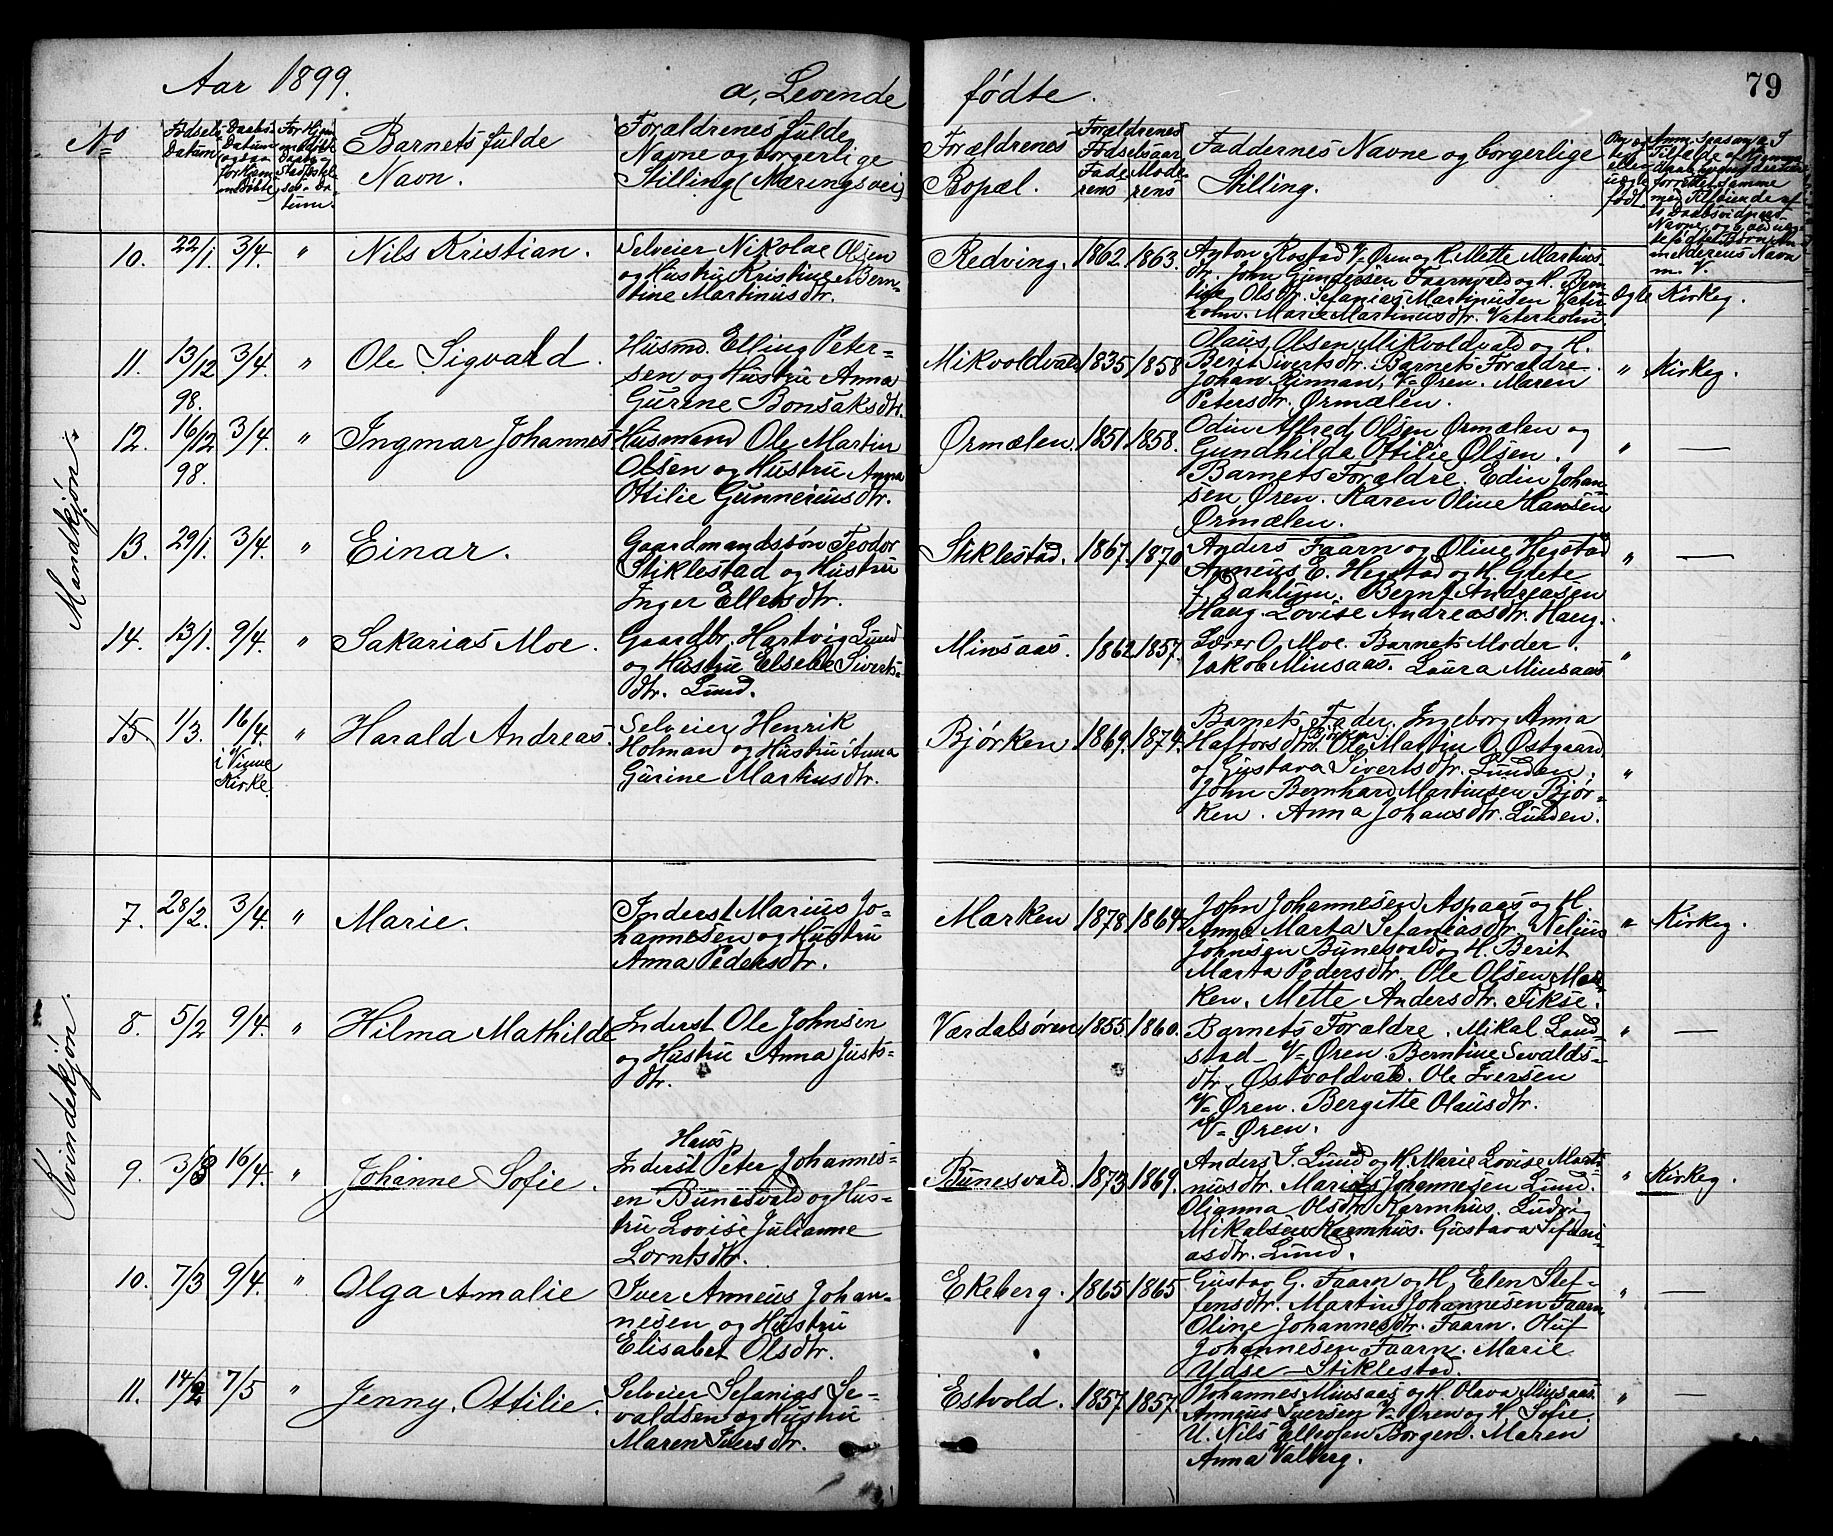 Aar 1899.
a, Levende fødte.
79
No
Fødsels Datum
Daabs Datum
Barnets fulde Navn.
Forældrenes fulde Navne og borgerlige Stilling (Næringsvei)
Forældrenes Bopæl.
Forældrenes Fødselsaar
Faderens
Moderens
Faddernes Navne og borgerlige Stilling.
Mandkjøn.
10. 22/1. 3/4. " Nils Kristian.
Selveier Nikolae Olsen
og Hustru Kristine Bern-
tine Martinusdtr.
Redving. 1862. 1863.
Anton Rostad V-Øren og H. Mette Martinus-
dtr. John Gundersen Faarnvald og H. Bern-
tine Olsdtr. Sefanias Martinusen Vater-
holm. Marie Martinusdtr. Vaterholm.
Ægte Kirkeg.
11. 13/12 98. 3/4. " Ole Sigvald.
Husmd. Elling Peter-
sen og Hustru Anna
Gurine Bonsaksdtr.
Mikvoldvald 1835 1858
Olaus Olsen Mikvoldvald og H.
Berit Sivertsdtr. Barnets Forældre.
Johan Rinnan, V-Øren. Maren
Petersdtr. Ørmælen.
" Kirkeg.
12. 16/12 98. 3/4. " Ingmar Johannes
Husmand Ole Martin
Olsen og Hustru Anna
Ottilie Gunneriusdtr.
Ørmælen. 1851. 1858.
Odin Alfred Olsen Ørmælen og
Gundhilda Ottilie Olsen.
Barnets Forældre. Edin Johan-
sen Øren. Karen Oline Hansen
Ørmælen.
" —
13. 29/1. 3/4. " Einar.
Gaardmandssøn Teodor
Stiklestad og Hustru
Inger Ellevsdtr.
Stiklestad. 1867. 1870
Anders Faarn og Oline Hegstad
Anneus E. Hegstad og H. Grete
f. Dahlum. Bernt Andreasen
Haug. Lovise Andreasdtr. Haug.
" —
14. 13/1. 9/4. " Sakarias Moe.
Gaardbr. Hartvig Lund
og Hustru Elsebe Siverts-
dtr. Lund.
Minsaas. 1862 1857.
Lærer O. Moe. Barnets Moder.
Jakob Minsaas. Laura Minsaas
"
15. 1/3. 16/4. i Vinne Kirke. " Harald Andreas.
Selveier Henrik
Holman og Hustru Anna
Gurine Martinusdtr.
Bjørken 1869. 1874.
Barnets Fader. Ingeborg Anna
Haftorsdtr. Bjørken. Ole Martin O. Østgaard
og Gustava Sivertsdtr. Lunden.
John Bernhard Martinsen Bjør-
ken. Anna Johansdtr. Lunden.
"
Kvindekjøn.
7. 28/2. 3/4. " Marie.
Inderst Marius Jo-
hannesen og Hustru
Anna Pedersdtr.
Marken 1878 1864
John Johannesen Aspaas og H.
Anna Marta Sefaniasdtr. Nelius
Johnsen Bunesvald og H. Berit
Marta Pedersdtr. Ole Olsen Mar-
ken. Mette Andersdtr. Fikse.
" Kirkeg.
8. 5/2 9/4. " Hilma Mathilde
Inderst Ole Johnsen
og Hustru Anna Justs-
dtr.
Værdalsøren 1855 1860.
Barnets Forældre. Mikal Land-
stad V-Øren. Berntine Sevalds-
dtr. Østvoldvald. Ole Iversen
V-Øren. Bergitte Olausdtr.
V-Øren.
" —
9. 3/3 16/4. " Johanne Sofie.
Hans
Inderst Peter Johannes-
en Bunesvald og Hus-
tru Lovise Julianne
Lorntsdtr.
Bunesvald. 1873 1869.
Anders J. Lund og H. Marie Lovise Marti-
nusdtr. Marius Johannesen Lund.
Olianna Olsdtr. Karmhus. Ludvig
Mikalsen Karmhus. Gustava Sefani-
asdtr. Lund.
" Kirkeg.
10. 7/3 9/4. " Olga Amalie
Iver Anneus Johan-
nesen og Hustru
Elisabet Olsdtr.
Ekeberg. 1865 1865
Gustav G. Faarn og H. Elen Stef-
fensdtr. Martin Johannesen Faarn
Oline Johannesdtr. Faarn. Oluf
Johannesen Faarn. Marie
Ydse Stiklestad.
" —
11. 14/2 7/5 " Jenny Ottilie.
Selveier Sefanias Se-
valdsen og Hustru
Maren Iversdtr.
Estvold. 1857. 1857
Johannes Minsaas og H. Olava Minsaas.
Anneus Iversen V-Øren og H. Sofie.
U. Nils Ellevsen Borgen. Maren
Anna Valberg.
" —